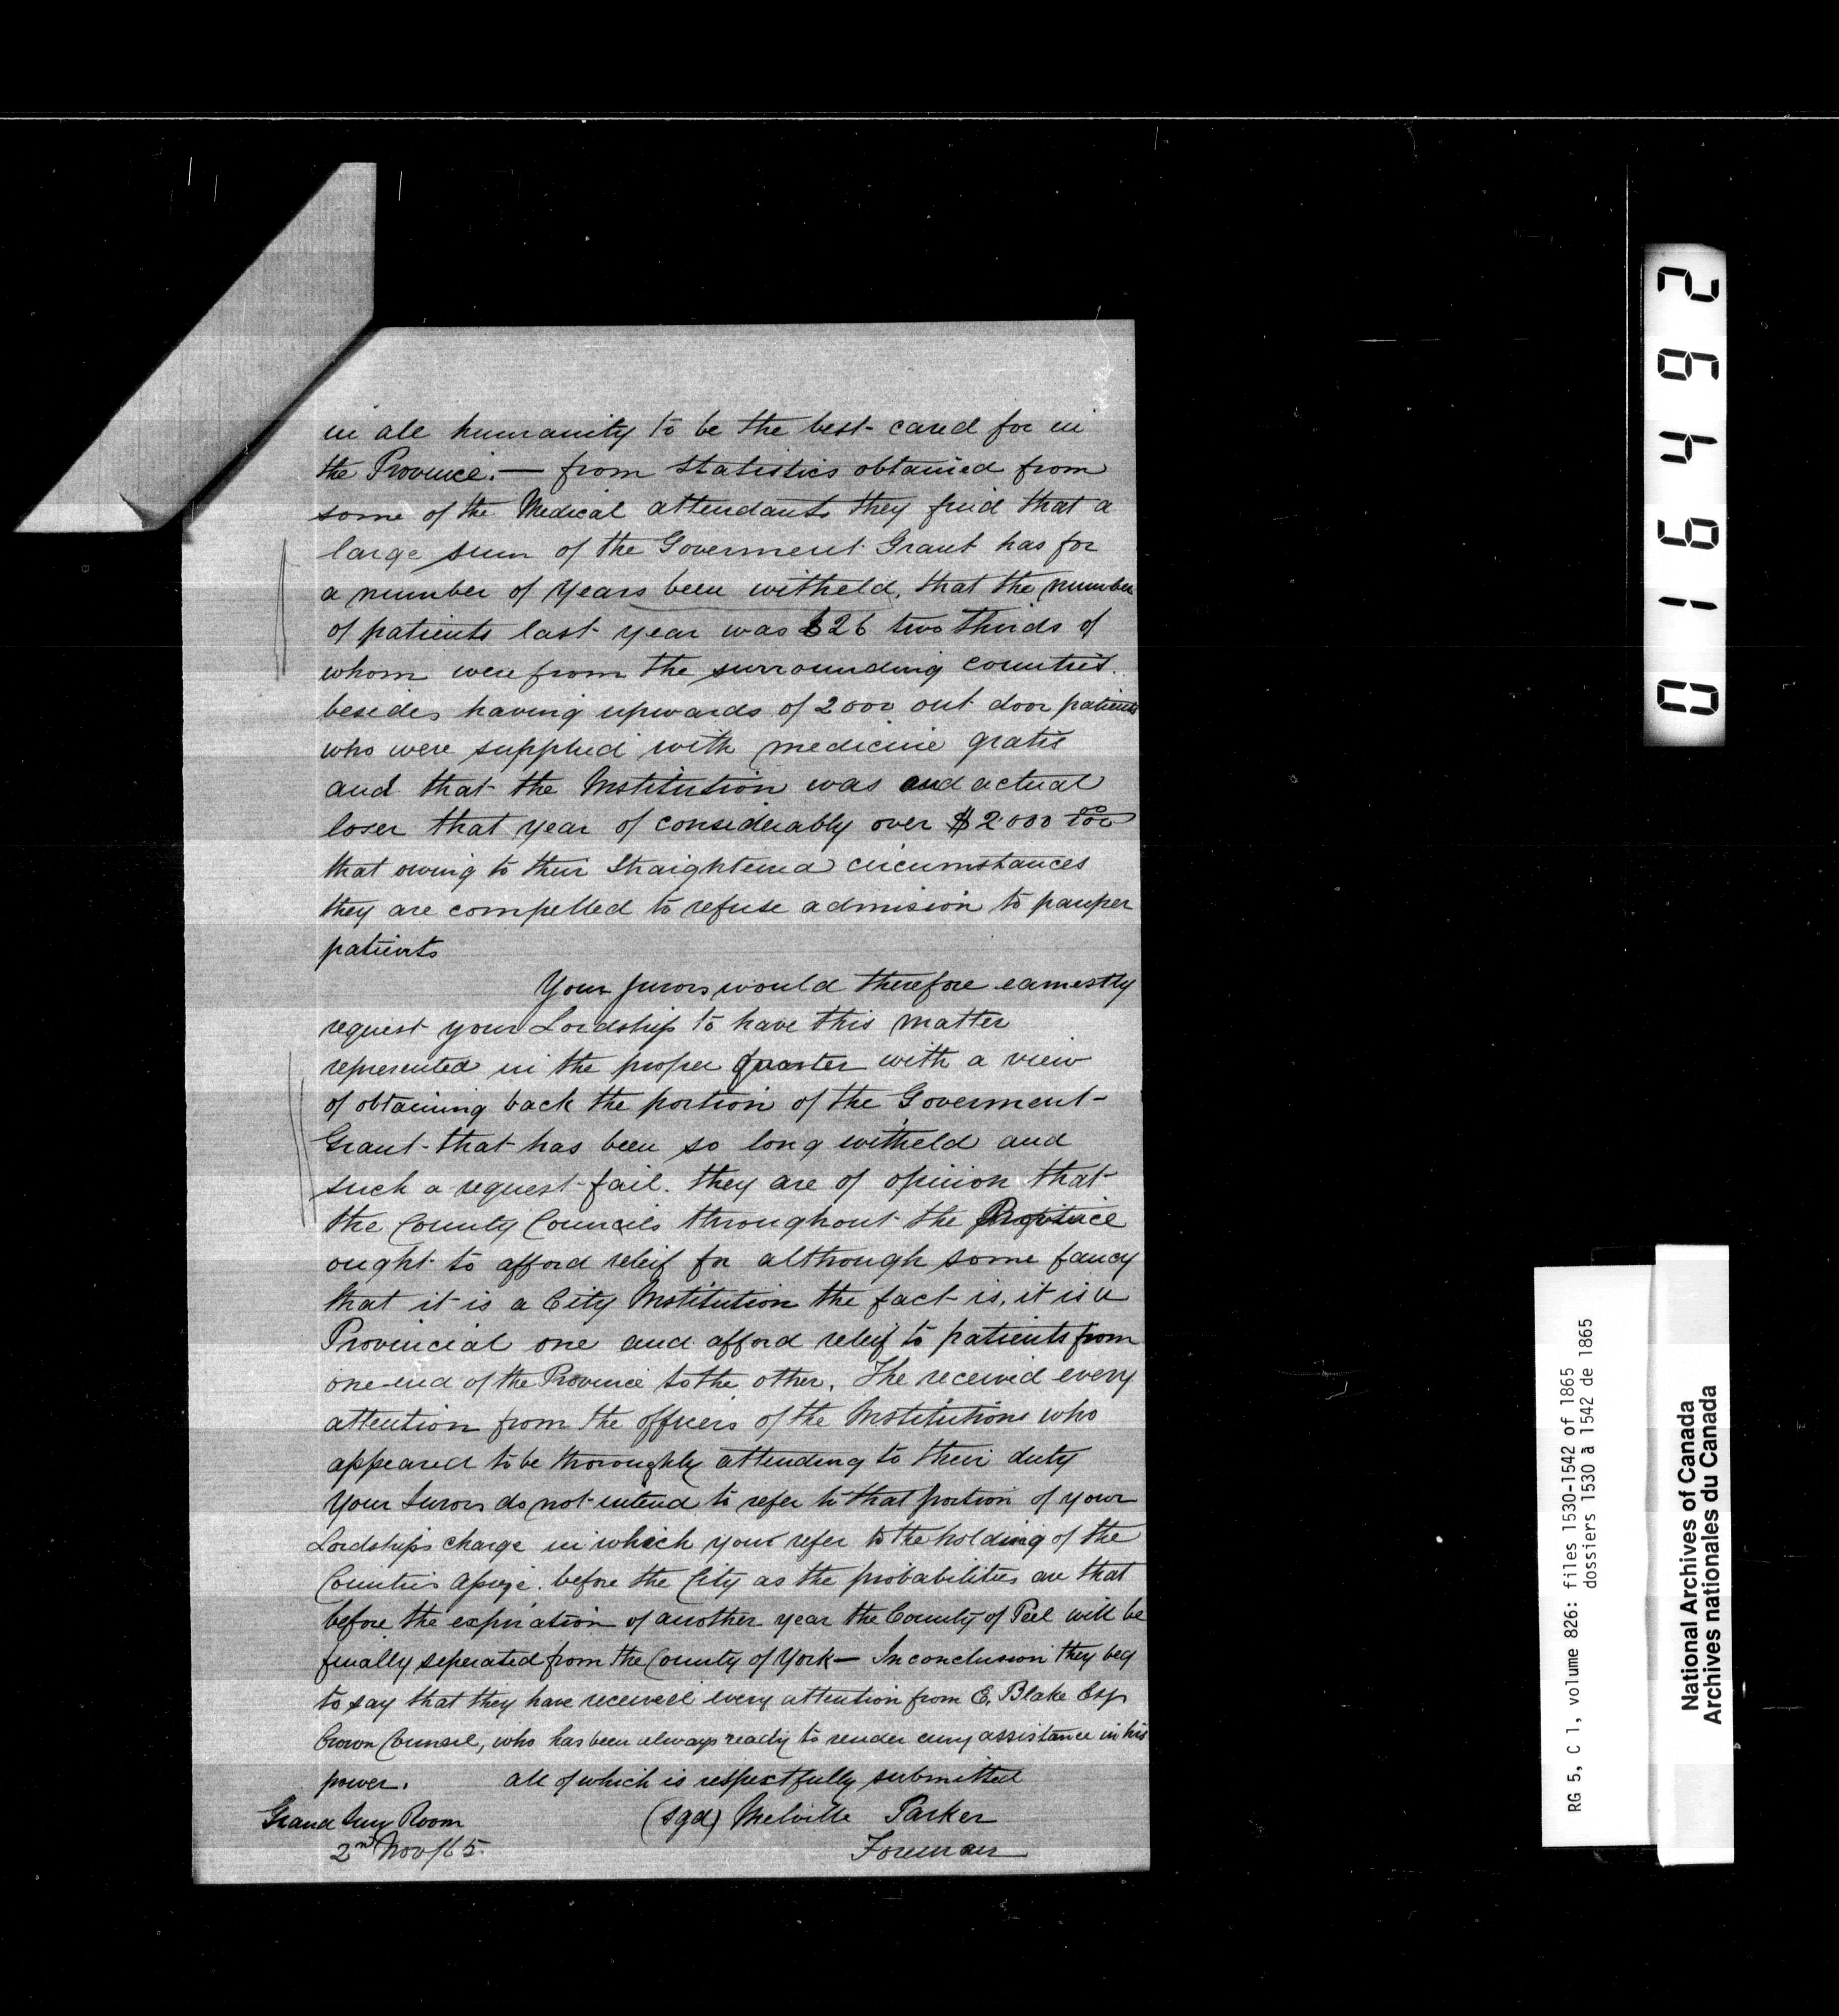 in all humanity to be the best cared for in
the Province. — from statistics obtained from
some of the Medical attendants they find that a
large sum of the Goverment Grant has for
a number of years been witheld, that the number
of patients last year was 826 two thirds of
whom were from the surrounding counties.
besides having upwards of 2000 out door patients
who were supplied with medicine gratis
and that the Institution was and actual
loser that year of considerably over $2000 00/100
that owing to their straightened circumstances
they are compelled to refuse admision to pauper
patients
Your Jurors would therefore earnestly
request your Lordship to have this matter
represented in the proper quarter with a view
of obtaining back the portion of the Goverment
Grant that has been so long witheld and
such a request fail. they are of opinion that
the County Councils throughout the Province
ought to afford releif for although some fancy
that it is a City Institution the fact is, it is a
Provincial one and afford releif to patients from
one end of the Province to the other. The received every
attention from the officers of the Institutions who
appeared to be thoroughly attending to their duty
Your Jurors do not intend to refer to that portion of your
Lordships charge in which your refer to the holding of the
Counties before the City as the probabilities are that
before the expiration of another year the County of Peel will be
finally seperated from the County of York — In conclusion they beg
to say that they have received every attention from E. Blake Esqr
Crown Counsel, who has been always ready to render every assistance in his
power. all of which is respectfully submitted
Grand Jury Room (sgd) Melville Parker
2nd Nov/65. Foreman
016492
RG 5, C 1, volume 826: files 1530-1542 of 1865
dossiers 1530 à 1542 de 1865
National Archives of Canada
Archives nationales du Canada